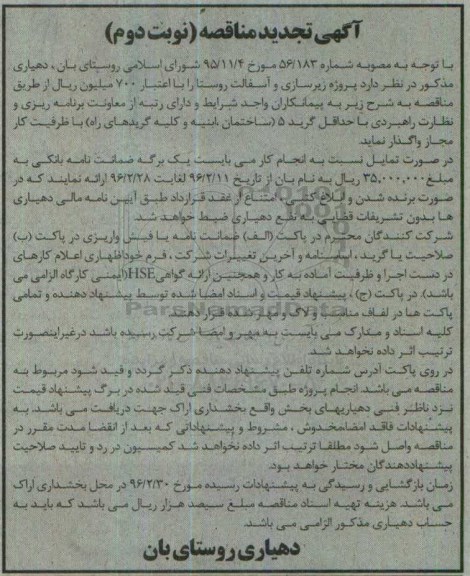 آگهی تجدید مناقصه (نوبت دوم)
با توجه به مصوبه شماره ۵۶/۱۸۳ مورخ ۹۵/۱۱/۴ شورای اسلامی روستای بان ، دهیاری
مذکور در نظر دارد پروژه زیرسازی و آسفالت روستا را با اعتبار ۷۰۰ میلیون ریال از طریق
مناقصه به شرح زیر به پیمانکاران واجد شرایط و دارای رتبه از معاونت برنامه ریزی و
نظارت راهبردی با حداقل گرید ۵ (ساختمان ،ابنیه و کلیه گریدهای راه) با ظرفیت کار
مجاز واگذار نماید.
در صورت تمایل نسبت به انجام کار می بایست یک برگه ضمانت نامه بانکی به
مبلغ ۳۵,۰۰۰,۰۰۰ ریال به نام بان از تاریخ ۹۶/۲/۱۱ لغایت ۹۶/۲/۲۸ ارائه نمایند که در
صورت برنده شدن و ابلاغ کتبی ، امتناع از عقد قرارداد طبق آیین نامه مالی دهیاری
ها بدون تشریفات قضایی به نفع دهیاری ضبط خواهد شد.
شرکت کنندگان محترم در پاکت (الف) ضمانت نامه یا فیش واریزی در پاکت (ب)
صلاحیت یا گرید ، اساسنامه و آخرین تغییرات شرکت ، فرم خوداظهاری اعلام کارهای
در دست اجرا و ظرفیت آماده به کار و همچنین ارائه گواهی HSE(ایمنی کارگاه الزامی می
باشد). در پاکت (ج) ، پیشنهاد قیمت و اسناد امضا شده توسط پیشنهاد دهنده و تمامی
پاکت ها در لفاف مناسب و لاک و مهر شده قرار دهند.
کلیه اسناد و مدارک می بایست به مهر و امضا شرکت رسیده باشد درغیراینصورت
ترتیب اثر داده نخواهد شد.
در روی پاکت آدرس شماره تلفن پیشنهاد دهنده ذکر گردد و قید شود مربوط به
مناقصه می باشد. انجام پروژه طبق مشخصات فنی قید شده در برگ پیشنهاد قیمت
نزد ناظر فنی دهیاریهای بخش واقع بخشداری اراک جهت دریافت می باشد. به
پیشنهادات فاقد امضامخدوش ، مشروط و پیشنهاداتی که بعد از انقضا مدت مقرر در
مناقصه واصل شود مطلقا ترتیب اثر داده نخواهد شد کمیسیون در رد و تایید صلاحیت
پیشنهاددهندگان مختار خواهد بود.
زمان بازگشایی و رسیدگی به پیشنهادات رسیده مورخ ۹۶/۲/۳۰ در محل بخشداری اراک
می باشد. هزینه تهیه اسناد مناقصه مبلغ سیصد هزار ریال می باشد که باید به
حساب دهیاری مذکور الزامی می باشد.
دهیاری روستای بان